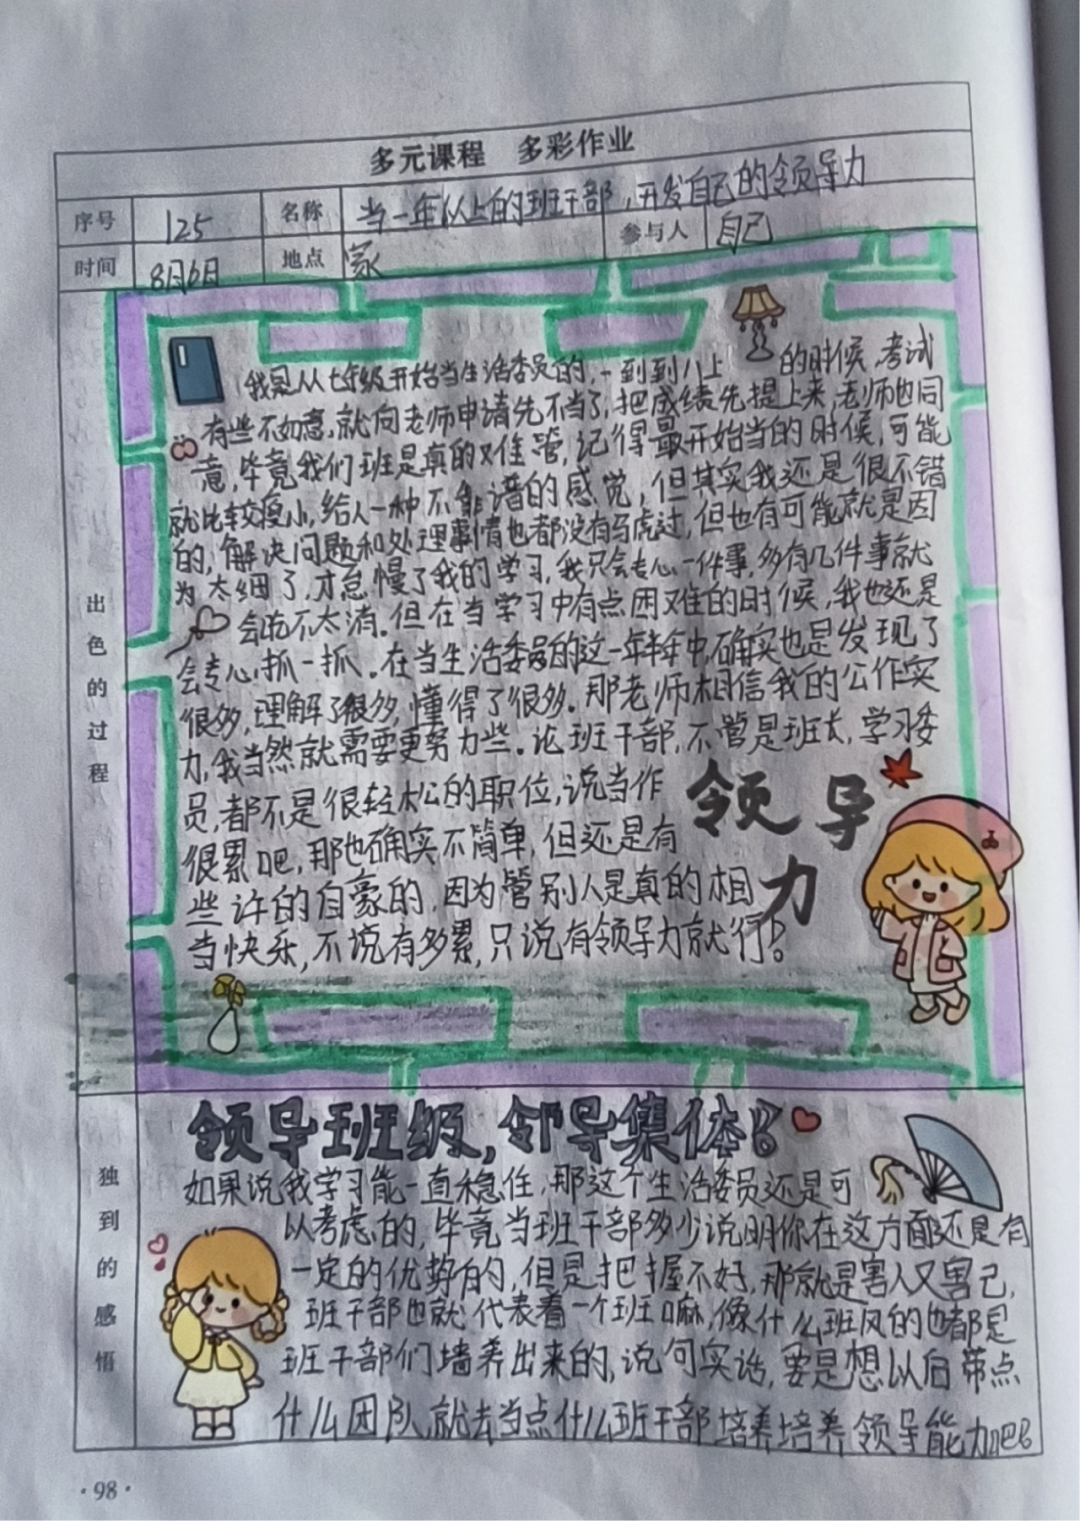 多元课程 多彩作业
序号 125 名称 当一年以上的班干部，开发自己的领导力
时间 8月6日 地点 家 参与人 自己
出色的过程
我是从七年级开始当生活委员的，一到到八上的时候，考试
有些不如意，就向老师申请先不当了，把成绩先提上来，老师也同
意，毕竟我们班是真的难管，记得最开始当的时候，可能
就比较瘦小，给人一种不靠谱的感觉，但其实我还是很不错
的，解决问题和处理事情也都没有马虎过，但也有可能就是因
为太细了，才怠慢了我的学习，我只会专心一件事，多有几件事就
会吃不太消。但在当学习中有点困难的时候，我也还是
会专心抓一抓。在当生活委员的这一年半年中，确实也是发现了
很多，理解了很多，懂得了很多。那老师相信我的公作实
力，我当然就需要更努力些。论班干部，不管是班太，学习委
员，都不是很轻松的职位，说当作
很累吧，那也确实不简单，但还是有
些许的自豪的，因为管别人是真的相
当快乐，不说有多累，只说有领导力就行！
领导
力
独到的感悟
领导班级，领导集体！
如果说我学习能一直稳住，那这个生活委员还是可
以考虑的，毕竟当班干部多少说明你在这方面还是有
一定的优势的，但是把握不好，那就是害人又害己，
班干部也就代表着一个班嘛，像什么班风的也都是
班干部们培养出来的，说句实话，要是想以后带点
什么团队，就去当点什么班干部培养培养领导能力吧！
·98·